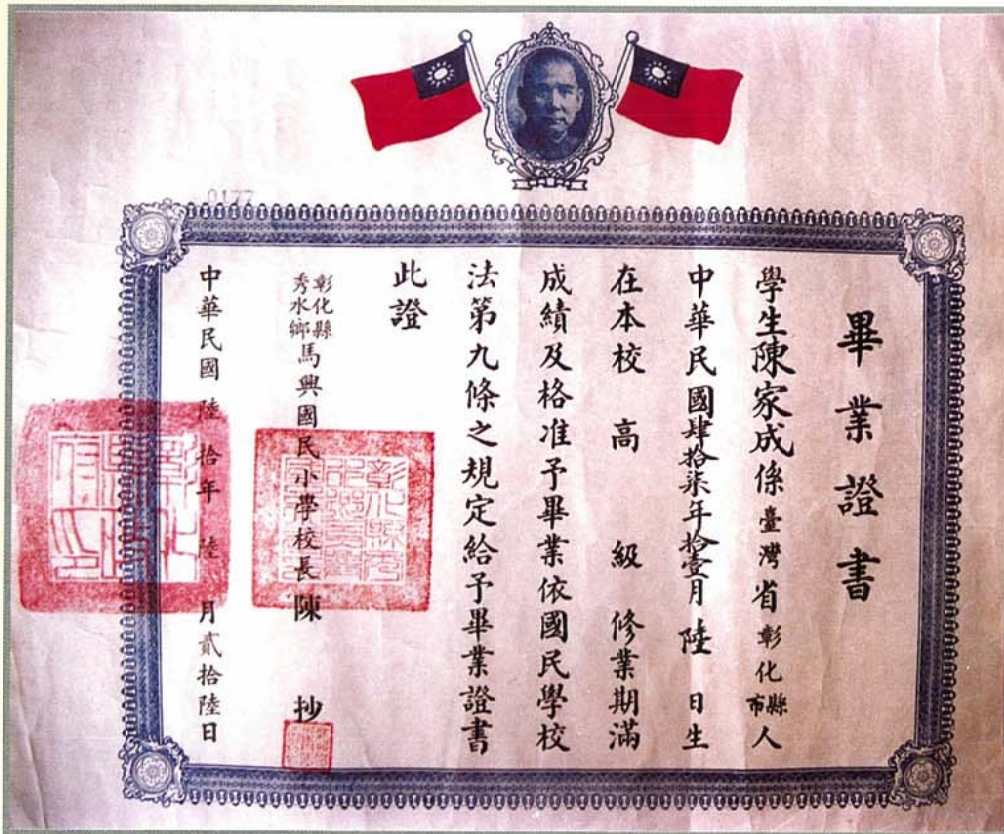 畢業證書
學生陳家成係臺灣省彰化縣市人
中華民國肆拾柒年拾壹月陸日生
在本校高級修業期滿
成績及格准予畢業依國民學校
法第九條之規定給予畢業證書
此證
彰化縣
秀水鄉馬興國民小學校長陳抄
中華民國陸拾年陸月貳拾陸日
0177